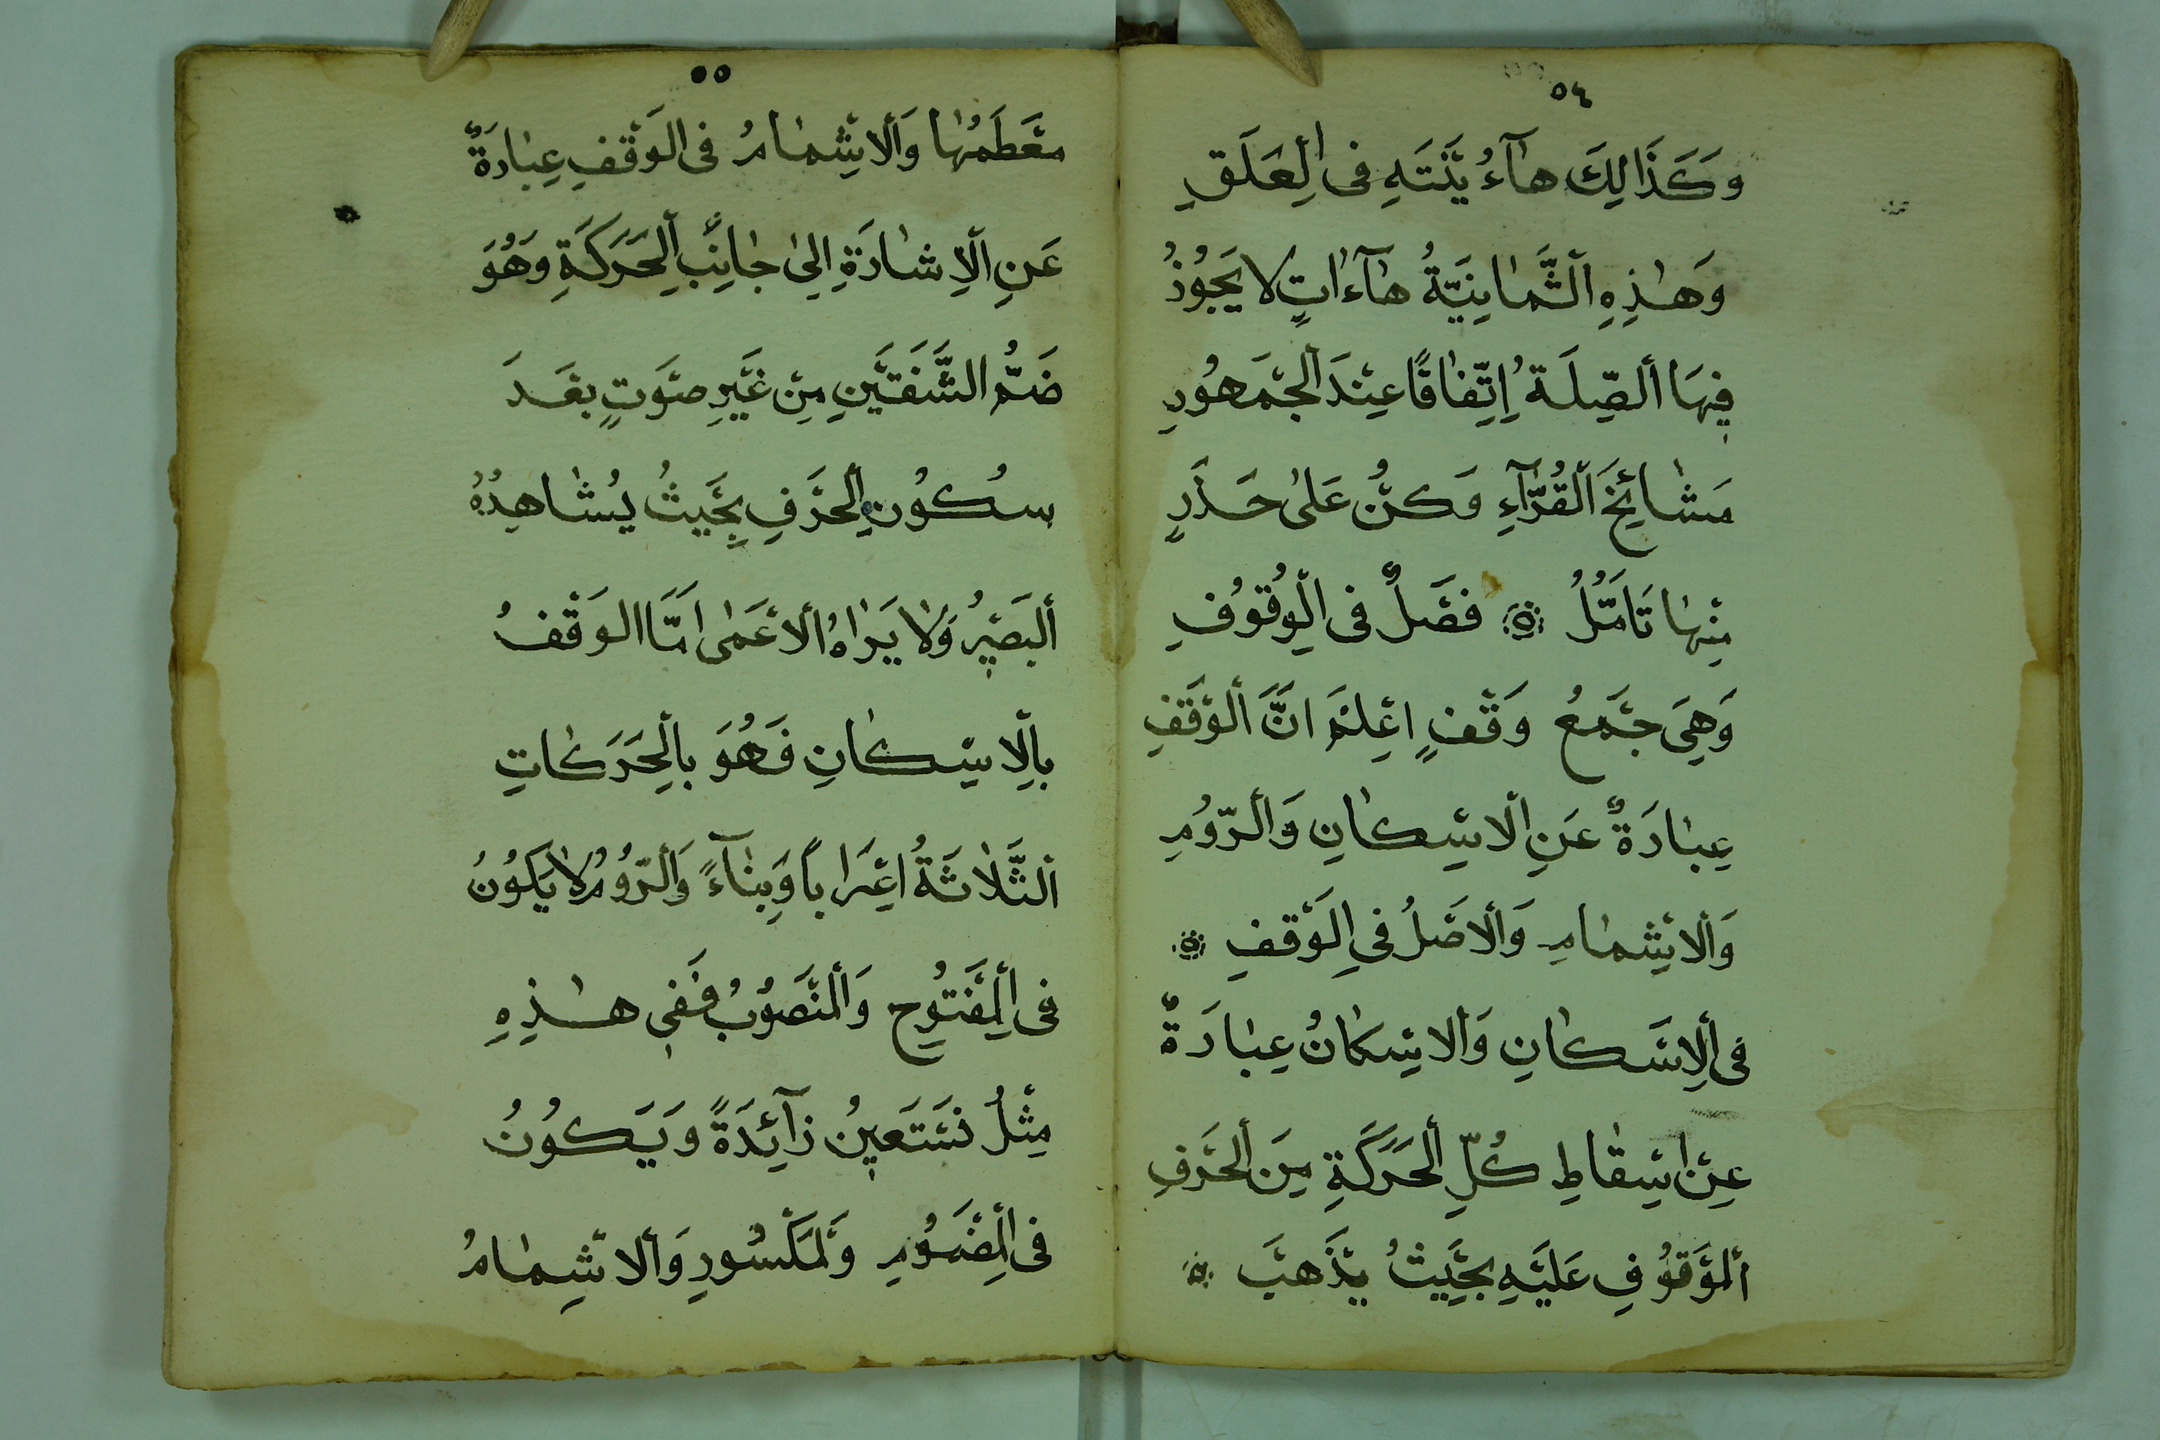 ٥٤
وَكَذَالِكَ هٰآءُ يَنْتَهِ فى الْعَلَقِ
وَهٰذِهِ الثَّمٰانِيَّةُ هٰآءٰاتٍ لٰا يَجُوزُ
فِيهَا الصِّلَةُ اِتِّفٰاقًا عِنْدَ الْجُمْهُورِ
مَشٰائِخَ الْقُرّٰآءِ وَكنُّ عَلىٰ حَذَرٍ
مِنْهٰا تَاَمَّلُ فَصْلٌ فى الْوُقُوُفِ
وَهِىَ جَمْعُ وَقْفٍ اِعْلَمْ انَّ الْوَقْفِ
عِبٰارَةٌ عَنِ الْاسْكٰانِ وَالرَّوْمِ
وَالْاشْمٰامِ وَالْاَصْلُ فِى الْوَقْفِ
فى الْاِسْكٰانِ وَالْاسْكٰانُ عِبٰارَةٌ
عَنْ اسْقٰاطِ كُلِّ الْحَرَكَةِ مِنَ الْحَرْفِ
الْمَوْقُوُفِ عَلَيْهِ بِحَيْثُ يَذْهَبَ
٥٥
مُعْظَمُهٰا وَالْاشْمٰامُ فى الْوَقْفِ عِبٰارَةٌ
عَنِ الْاِشٰارَةِ اِلىٰ جٰانِبِ الْحَرَكَةِ وَهُوَ
ضَمُّ الشَّفَتَيْنِ مِنْ غَيْرِ صَوْتٍ بَعْدَ
سُكُونِ الْحَرْفِ بِحَيْثُ يُشٰاهِدُهُ
الْبَصِيْرُ وَلٰا يَرٰاهُ الْاَعْمٰى اَمَّا الْوَقْفُ
بِالْاِسْكٰانِ فَهُوَ بِالْحَرَكٰاتِ
الثَّلٰاثَةُ اِعْرٰابًا وَبِنٰآءً وَالرَّوْمُ لٰا يَكُوُنُ
فى الْمَفْتُوُحِ وَالْمَنْصُوْبُ فَفِى هٰذِهِ
مِثْلُ نَسْتَعِيْنُ زٰآئِدَةً وَيَكُوُنُ
فى الْمَضْمُوُمِ وَلْمَكْسُورِ وَالْاشْمٰامُ